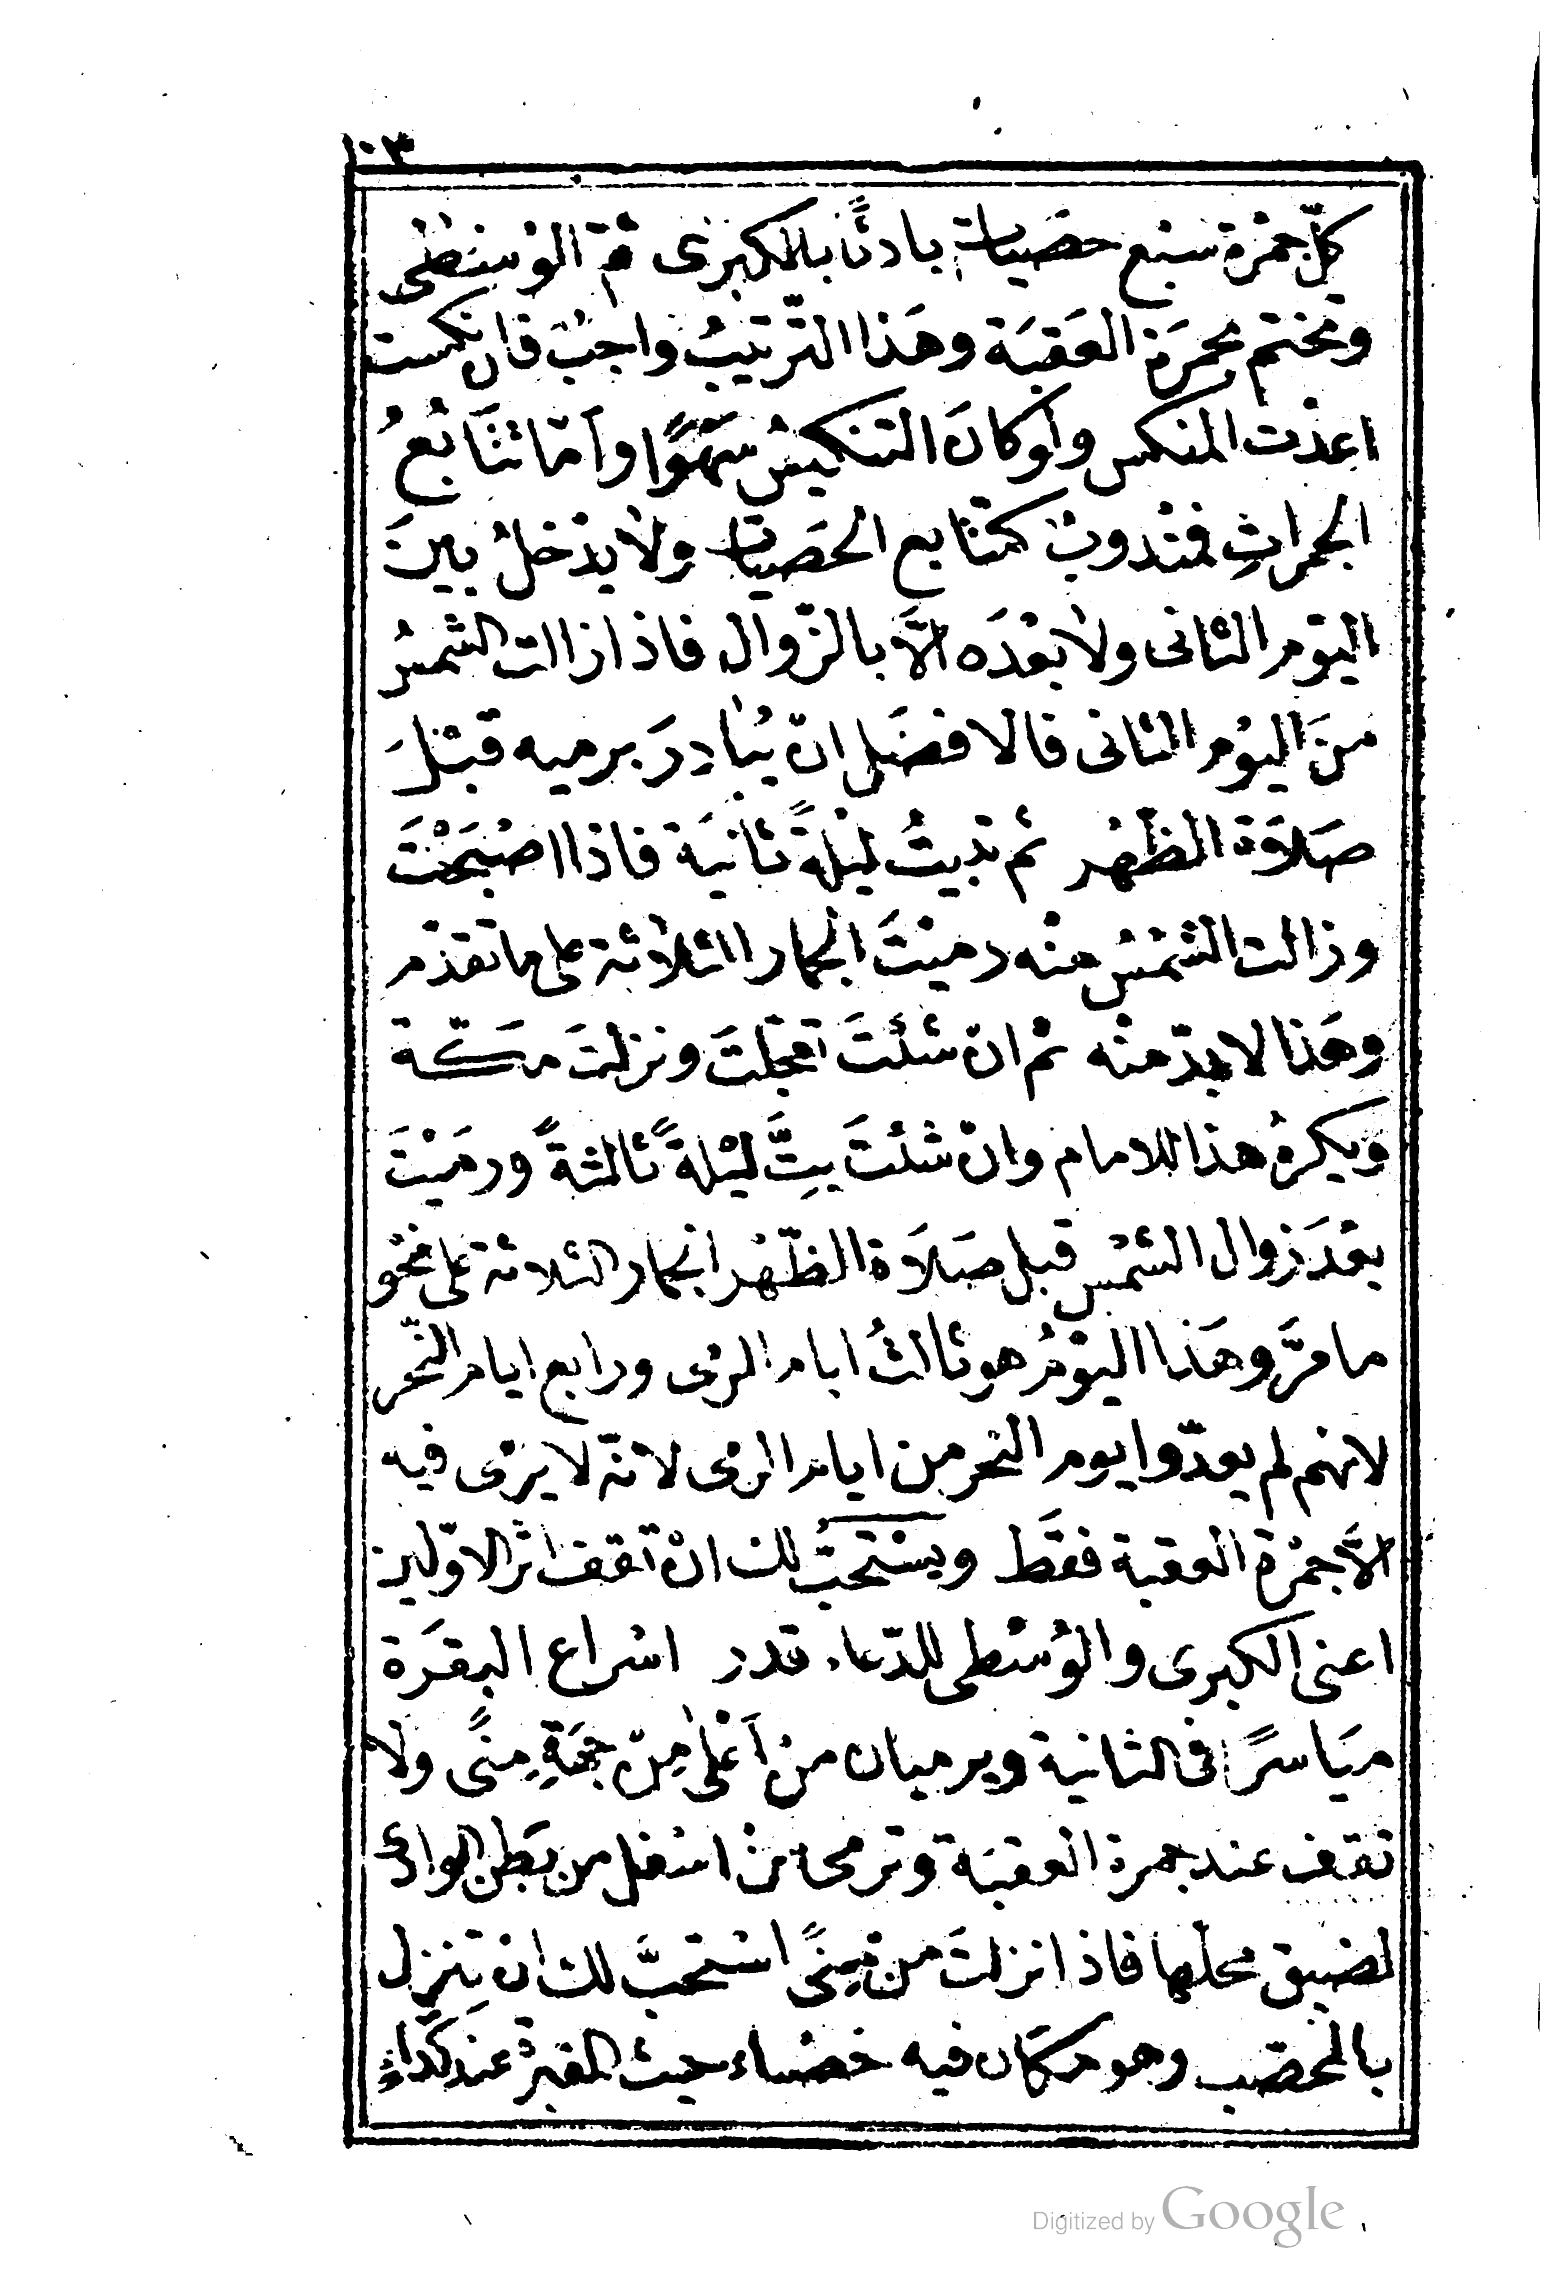 ١٠٣
كلّ جمْرة سبْع حصَيات بادئًا بالكبرى ثمّ الوُسْطى
وتختم بجمرَة العَقبَة وهَذا التّرتيبُ واجبٌ فان نكست
اعدْت المنكس ولَوكانَ التنكيسُ سَهْوًا وأمّا تتَابُعُ
الجمراتِ فمنْدوبٌ كتتابع الحصَيات ولا يدْخلُ بينَ
اليَوْم الثانى ولا بعْدَه الَّا بالزّوال فاذا زالت الشمسُ
منَ اليوْم الثانى فالافضَل انْ يُبادِرَ برميه قبْلَ
صَلَاة الظّهْر ثم تبيتُ ليْلةً ثانيَة فاذا اصْبَحْتَ
وزالت الشمْسُ منْه رميْتَ الجمار الثلاثة على ما تقدّم
وهَذا لا بدّ منْه ثم انْ شئتَ تعجّلتَ ونزلتَ مَكّة
ويكرهُ هذا للامام وانْ شئتَ بِتَّ ليْلةً ثالثةً ورمَيْتَ
بعْدَ زوال الشمْس قبل صَلَاة الظّهْر الجمار الثلاثة على نحْو
ما مرَّ وهَذا اليَوْمُ هو ثالثُ ايام الرمْى ورابع ايام النّحر
لانهم لم يعدّوا يوم النحر من ايام الرمى لانّه لا يرْمى فيه
الَّا جمْرة العقبة فقَط ويسْتحبُّ لك انْ تقف اثر الاوّلين
اعنى الكبرى والوُسْطى للدّعاء قدر اسْراع البقرَة
ميَاسرًا فى الثانية ويرميان منْ أعْلى مِنْ جهَةِ مِنًى ولا
تقف عند جمرة العقبَة وترمى منْ اسْفل من بَطن الوادى
لضيق محلّها فاذا نزلتَ من مِنًى اسْتحبَّ لك انْ تنزل
بالمحصّب وهو مكَان فيه خضْباء حيث المقبرة عند كَدَاءٍ
Digitized by Google